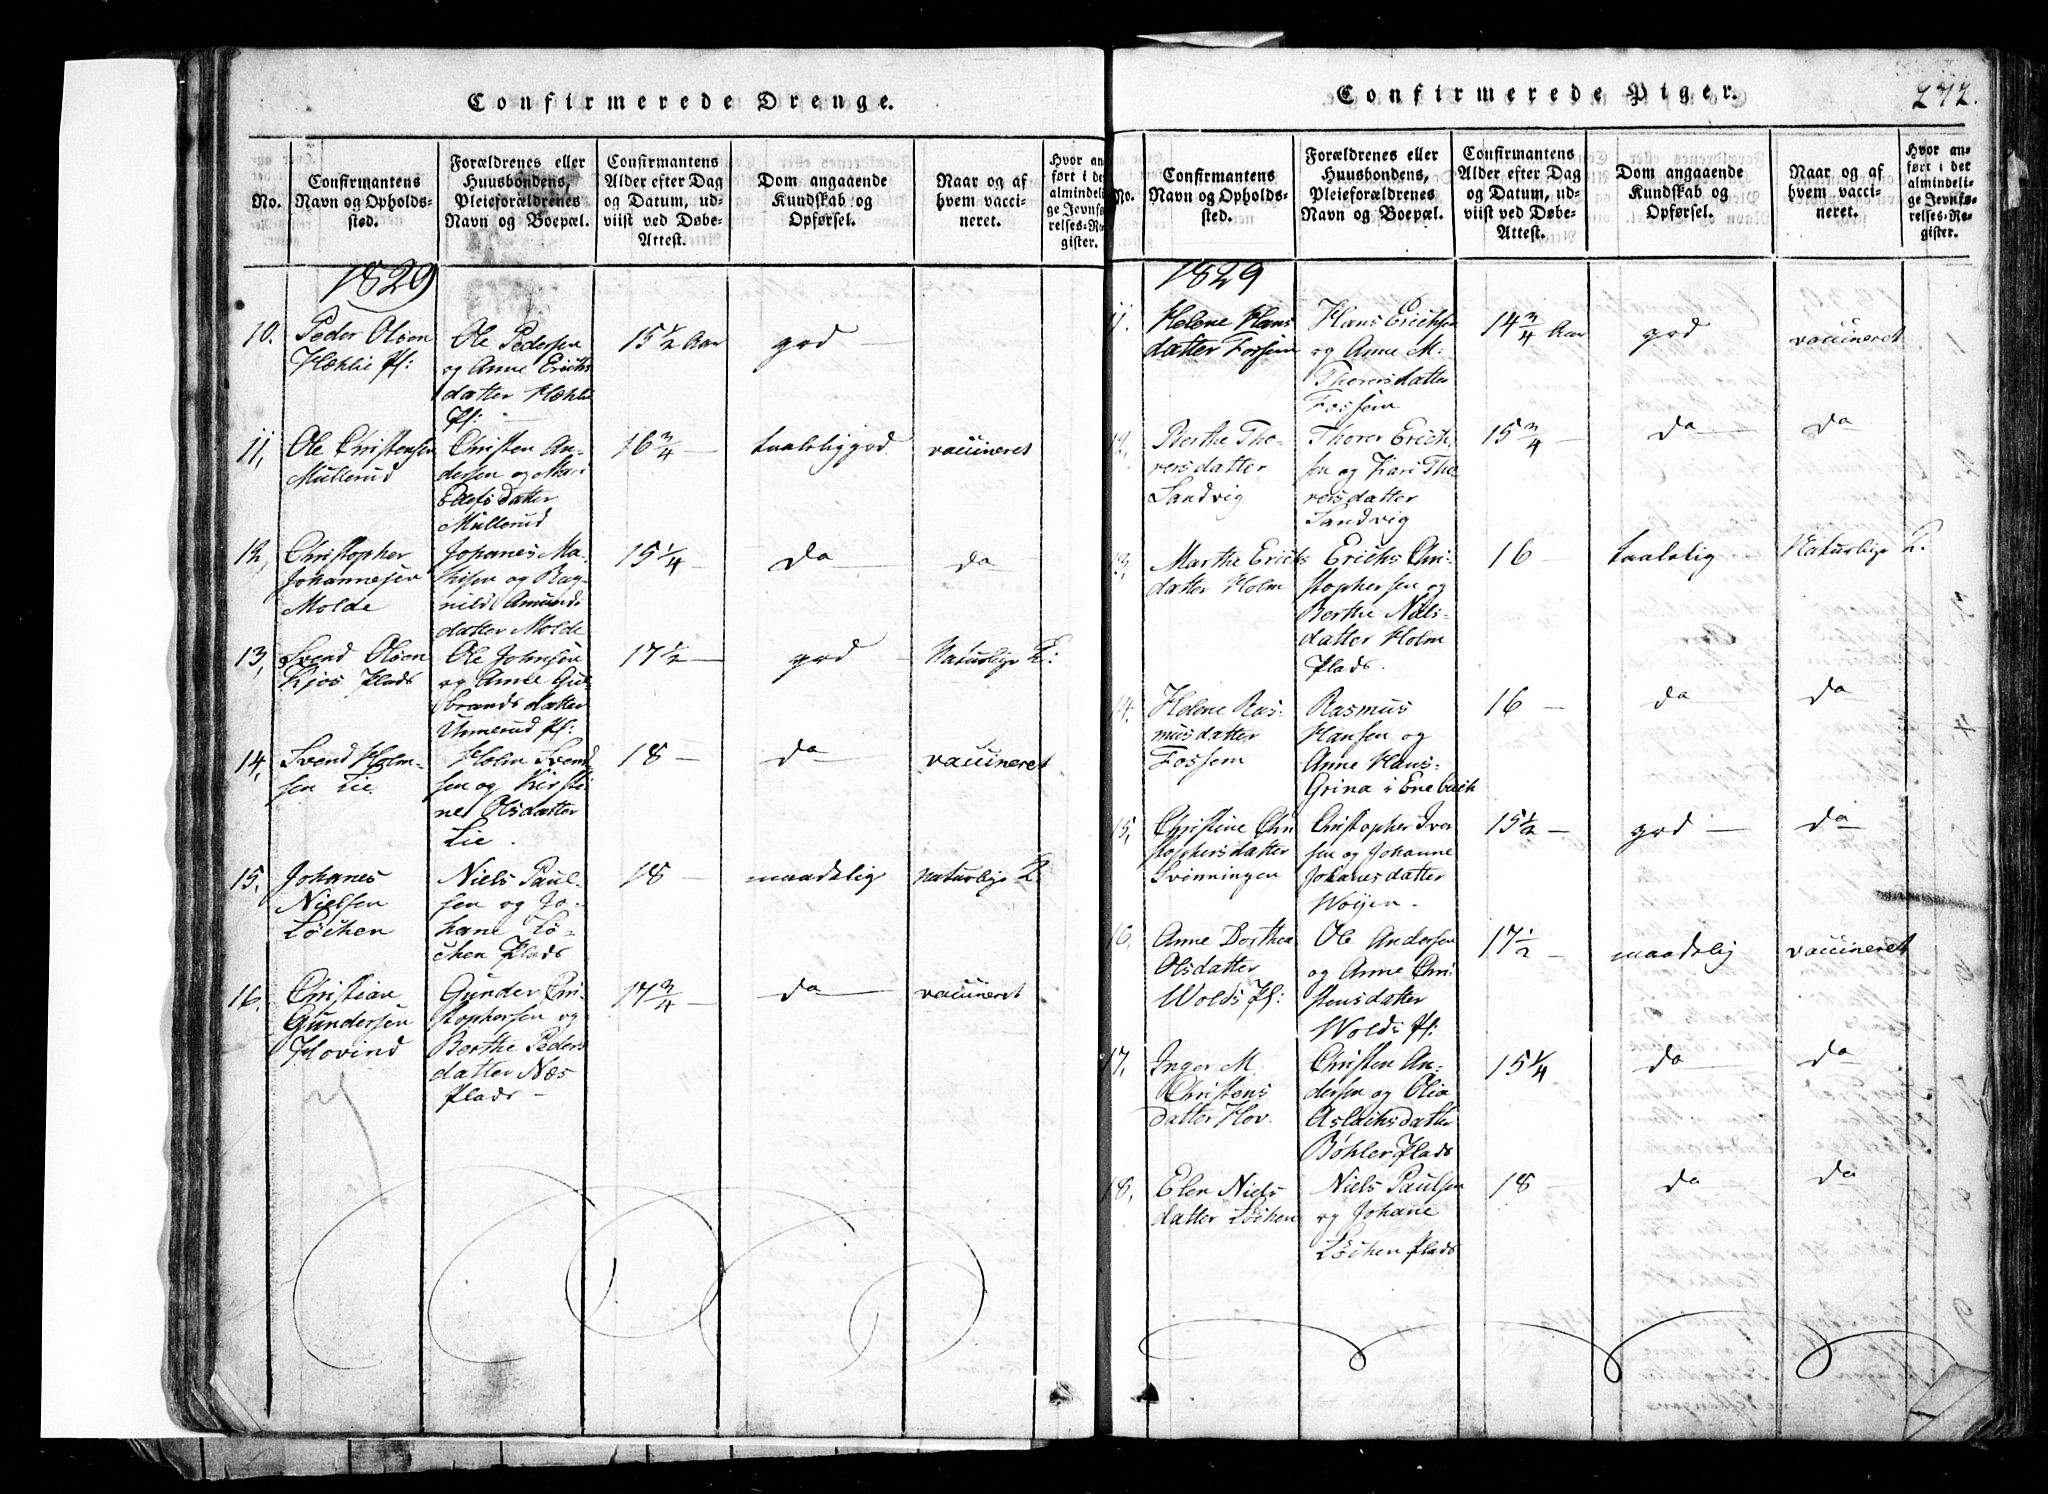 Confirmerede Drenge.
No.
Confirmantens
Navn og Opholds-
sted.
Forældrenes eller
Huusbondens,
Pleieforældrenes
Navn og Boepæl.
Confirmantens
Alder efter Dag
og Datum, ud-
viist ved Døbe-
Attest.
Dom angaaende
Kundskab og
Opførsel.
Naar og af
hvem vacci-
neret.
Hvor an
ført i de
almindeli
ge Jevnfø
relses-Re
gister.
1829
10.
Peder Olsen
Hæhlie Pl:
Ole Pedersen
og Anne Erichs
datter Hæhlie
Pl:
15 1/2 Aar
god —
11,
Ole Christensen
Mullerud
Christen An-
dersen og Mari
datter
Mullerud
16 3/4 —
taaelig god
vaccineret
12,
Christopher
Johannesen
Molde
Johanes Ma-
thisen og Rag-
nild Amunds
datter Molde
15 1/4 —
do
do
13,
Svend Olsen
Kjos Plads
Ole Johnsen
og Anne Gul-
brandsdatter
Unnerud Pl:
17 1/2 —
god —
Naturlige K:
14,
Svend Holm-
sen Lie
Holm Svend
sen og Kirsti
ne Olsdatter
Lie.
18 —
do
vaccineret
15,
Johanes
Nielsen
Løchen
Niels Paul-
sen og Jo-
hane Lø-
chen Plads
18 —
maadelig
Naturlige K.
16.
Christian
Gundersen
Hovind
Gunder Chri-
stophersen og
Berthe Peders
datter Næs
Plads —
17 3/4 —
do
vaccineret
Confirmerede Piger.
272.
No.
Confirmantens
Navn og Opholds-
sted.
Forældrenes eller
Huusbondens,
Pleieforældrenes
Navn og Boepæl.
Confirmantens
Alder efter Dag
og Datum, ud-
viist ved Døbe-
Attest.
Dom angaaende
Kundskab og
Opførsel.
Naar og af
hvem vacci-
neret.
Hvor an-
ført i det
almindeli-
ge Jevnfø-
relses-Re-
gister.
1829
11.
Helene Hans
datter Fossem
Hans Erichsen
og Anne M:
Thorersdatter
Fossem
14 3/4 Aar
god
vaccineret
12,
Berthe Tho-
rersdatter
Sandvig
Thorer Erich-
sen og Kari Tho-
rersdatter
Sandvig
15 3/4 —
do
do
13,
Marthe Erichs
datter Holm
Erichs Chri-
stophersen og
Berthe Niels-
datter Holm
Plads.
16 —
taaelig
Naturlige K.
14.
Helene Ras-
musdatter
Fossem
Rasmus
Hansen og
Anne Hans-
Grina i Enebach
16 —
do
do
15,
Christine Chri
stophersdatter
Svenningen
Christopher Iver
sen og Johanne
Johanesdatter
Woyen.
15 1/2 —
god —
do
16,
Anne Dorthea
Olsdatter
Wolds Pl:
Ole Andersen
og Anne Chri-
stensdatter
Wolds Pl:
17 1/2 —
maadelig
vaccineret
17,
Inger M.
Christens
datter Hov.
Christen An-
dersen og Olia
Aslachsdatter
Bøhler Plads
15 1/4
do
do
18,
Elen Niels
datter Løchen
Niels Paulsen
og Johane
Løchen Plads
18 —
do
do